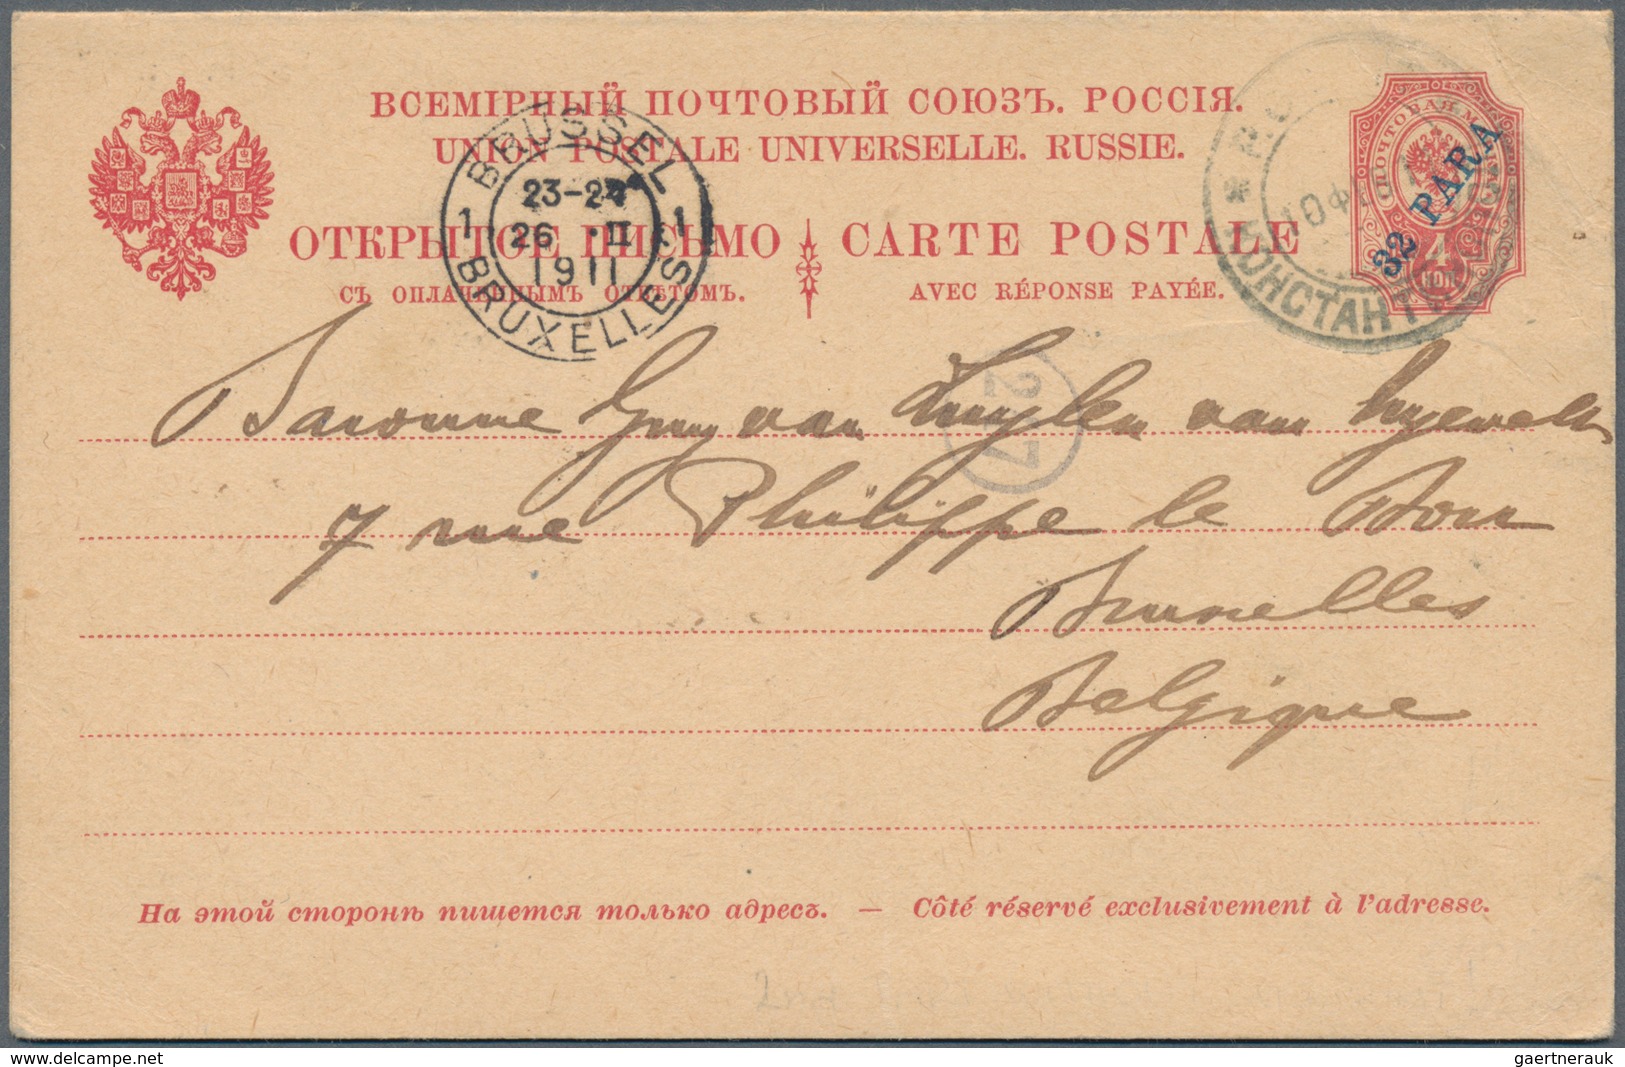 ВСЕМІРНЫЙ ПОЧТОВЫЙ СОЮЗЪ. РОССІЯ.
UNION POSTALE UNIVERSELLE. RUSSIE.
ОТКРЫТОЕ ПИСЬМО CARTE POSTALE
СЪ ОПЛАЧЕННЫМЪ ОТВѢТОМЪ. AVEC RÉPONSE PAYÉE.
BRUSSEL
23-24
1 26 II 1
1911
BRUXELLES
32 PARA
10 ФЕ
КОНСТАНТ
Baronne Guy van Zuylen van Nyevelt
7 rue Philippe le Bon
Bruxelles
Belgique
На этой сторонѣ пишется только адресъ. — Côté réservé exclusivement à l'adresse.
www.delcampe.net
gaertnerauk